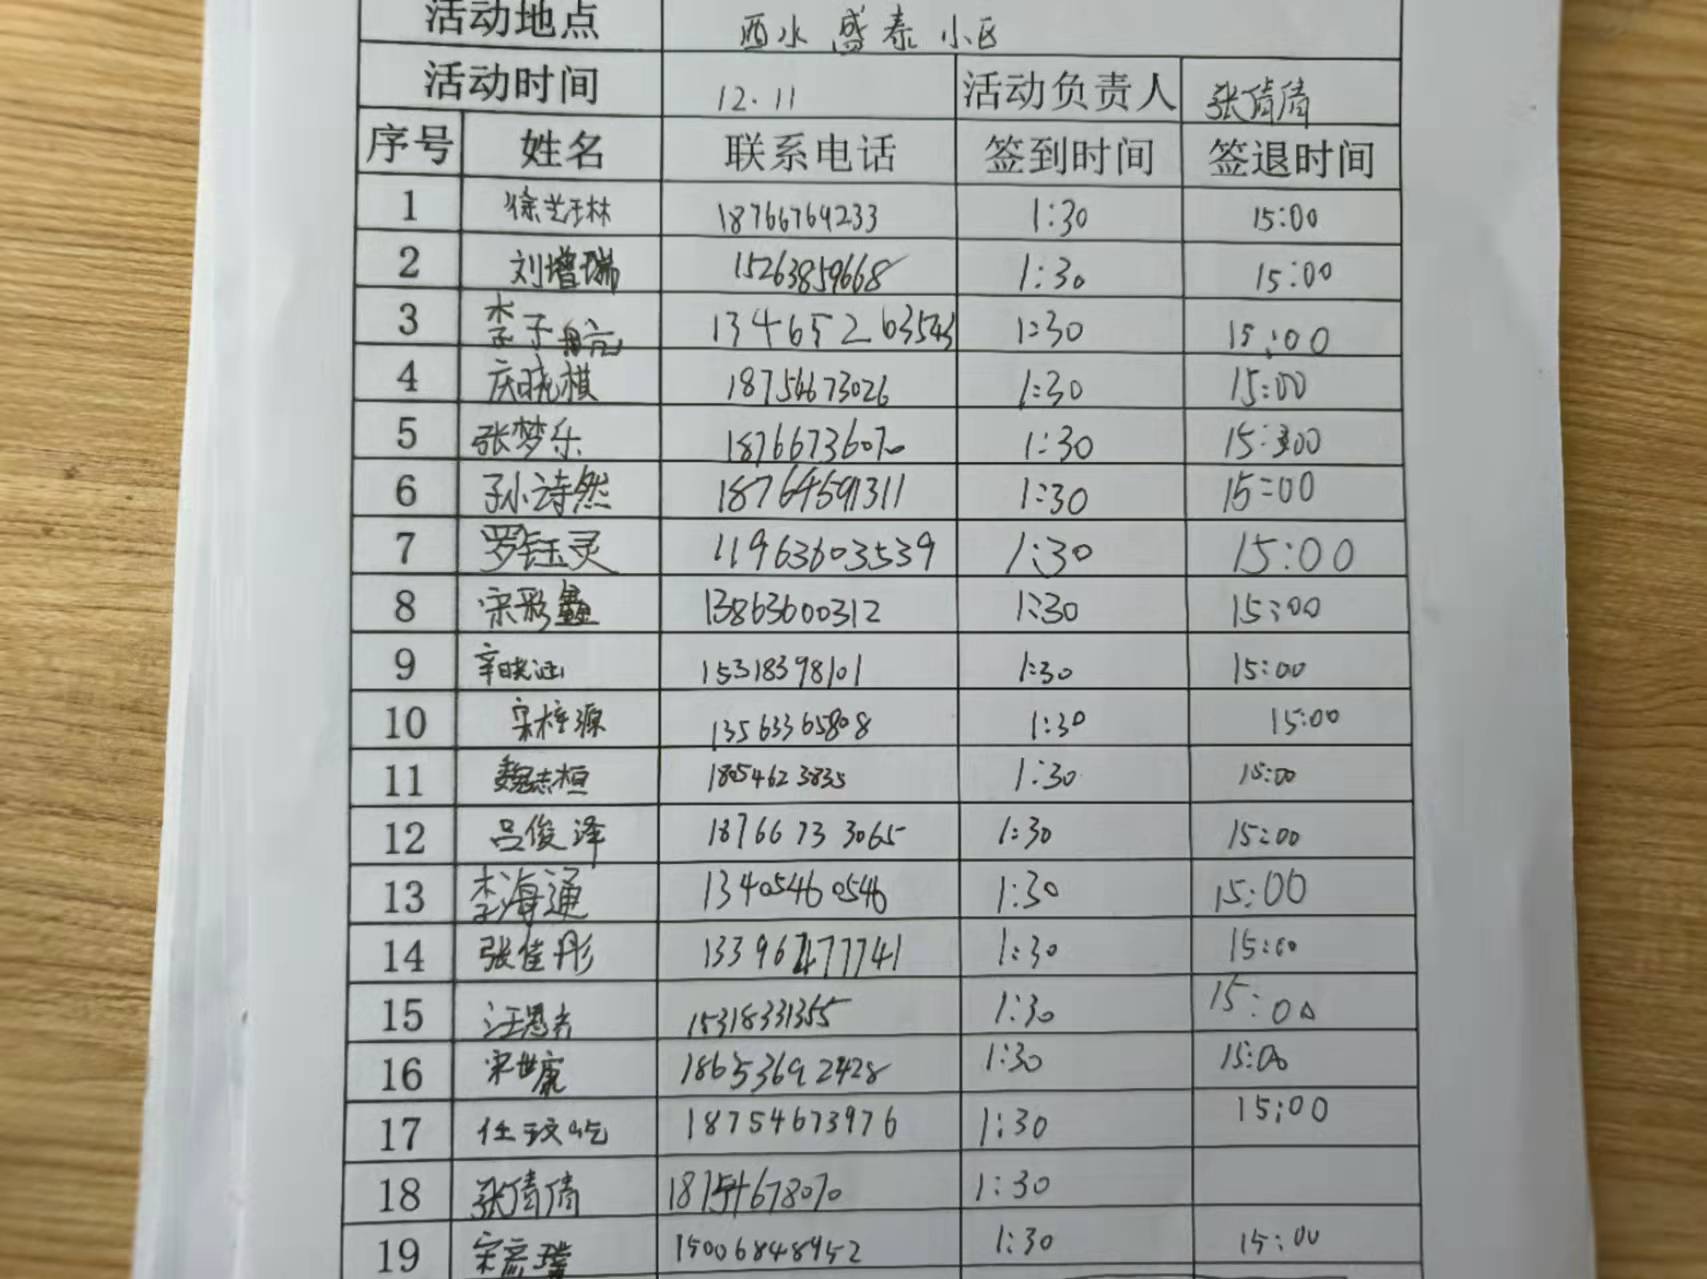 活动地点 西水盛泰小区
活动时间 12.11 活动负责人 张倩倩
序号 姓名 联系电话 签到时间 签退时间
1 徐艺林 18766769233 1:30 15:00
2 刘增瑞 15263859668 1:30 15:00
3 李子航 13465263543 1:30 15:00
4 庆晓棋 18754673026 1:30 15:00
5 张梦乐 18766736070 1:30 15:00
6 孙诗然 18764591311 1:30 15:00
7 罗钰灵 11963603539 1:30 15:00
8 宋彩鑫 13863600312 1:30 15:00
9 辛晓涵 15318398101 1:30 15:00
10 宋梓源 13563365808 1:30 15:00
11 魏志桓 18054623835 1:30 15:00
12 吕俊泽 18766733065 1:30 15:00
13 李海通 13405460546 1:30 15:00
14 张佳彤 1:30 15:00
15 15318331355 1:30 15:00
16 宋世康 18653692428 1:30 15:00
17 任玟屹 18754673976 1:30 15:00
18 张倩倩 18754678070 1:30
19 宋彦瑾 15006848952 1:30 15:00